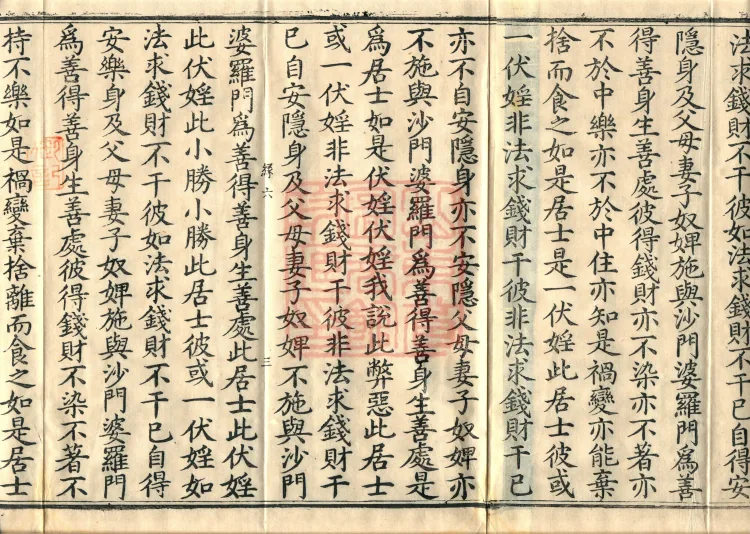 法求錢財不干彼如法求錢財不干已自得安
隱身及父母妻子奴婢施與沙門婆羅門爲善
得善身生善處彼得錢財亦不染亦不著亦
不於中樂亦不於中住亦知是禍變亦能棄
捨而食之如是居士是一伏婬此居士彼或
一伏婬非法求錢財干彼非法求錢財干已
亦不自安隱身亦不安隱父母妻子奴婢亦
不施與沙門婆羅門爲善得善身生善處是
爲居士如是伏婬伏婬我說此弊惡此居士
或一伏婬非法求錢財干彼非法求錢財干
已自安隱身及父母妻子奴婢不施與沙門
六 三
婆羅門爲善得善身生善處此居士此伏婬
此伏婬此小勝小勝此居士彼或一伏婬如
法求錢財不干彼如法求錢財不干已自得
安樂身及父母妻子奴婢施與沙門婆羅門
爲善得善身生善處彼得錢財不染不著不
持不樂如是禍變棄捨離而食之如是居士